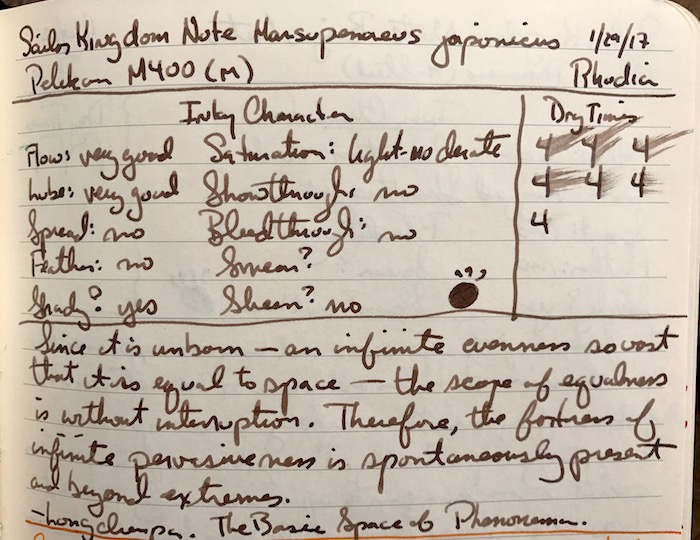 Sailor Kingdom Note Marsupenaeus japonicus 1/29/17
Pelikan M400 (M) Rhodia
Inky Character Dry Times
Flow: very good Saturation: light-moderate 4 4 4
Lube: very good Showthrough: no 4 4 4
Spread: no Bleedthrough: no 4
Feather: no Smear?
Shady? yes Sheen? no
Since it is unborn — an infinite evenness so vast
that it is equal to space — the scope of equalness
is without interruption. Therefore, the fortress of
infinite pervasiveness is spontaneously present
and beyond extremes.
-Longchenpa. The Basic Space of Phenomena.